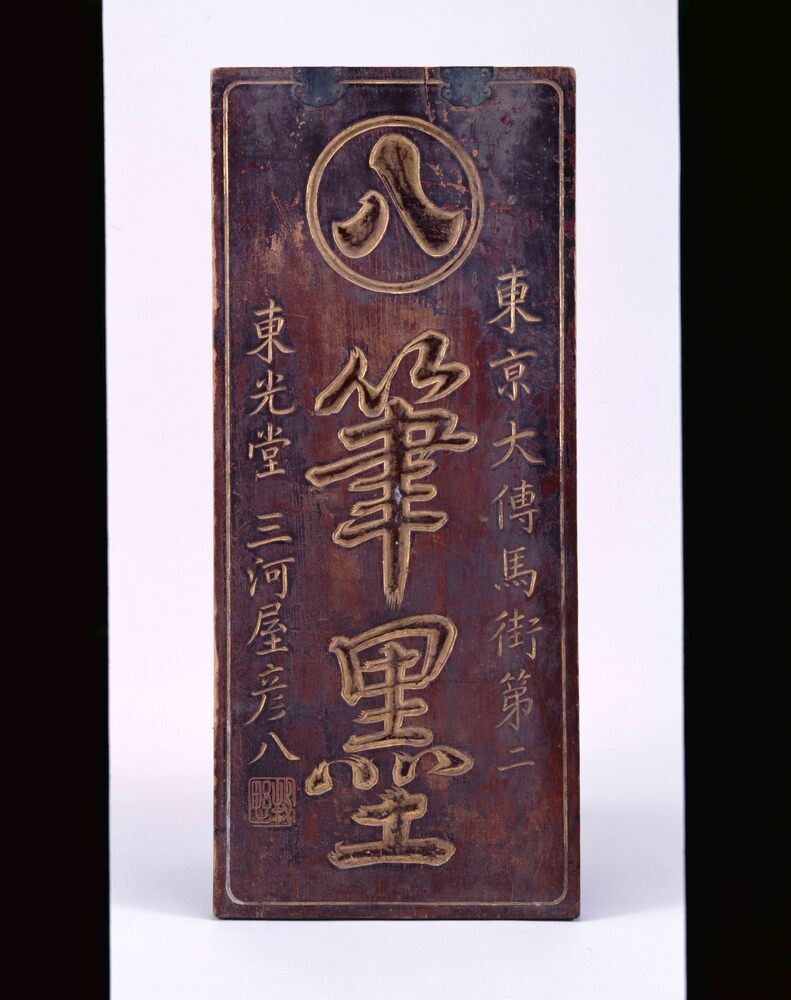 八
東京大傳馬街第二
筆墨
東光堂 三河屋彦八